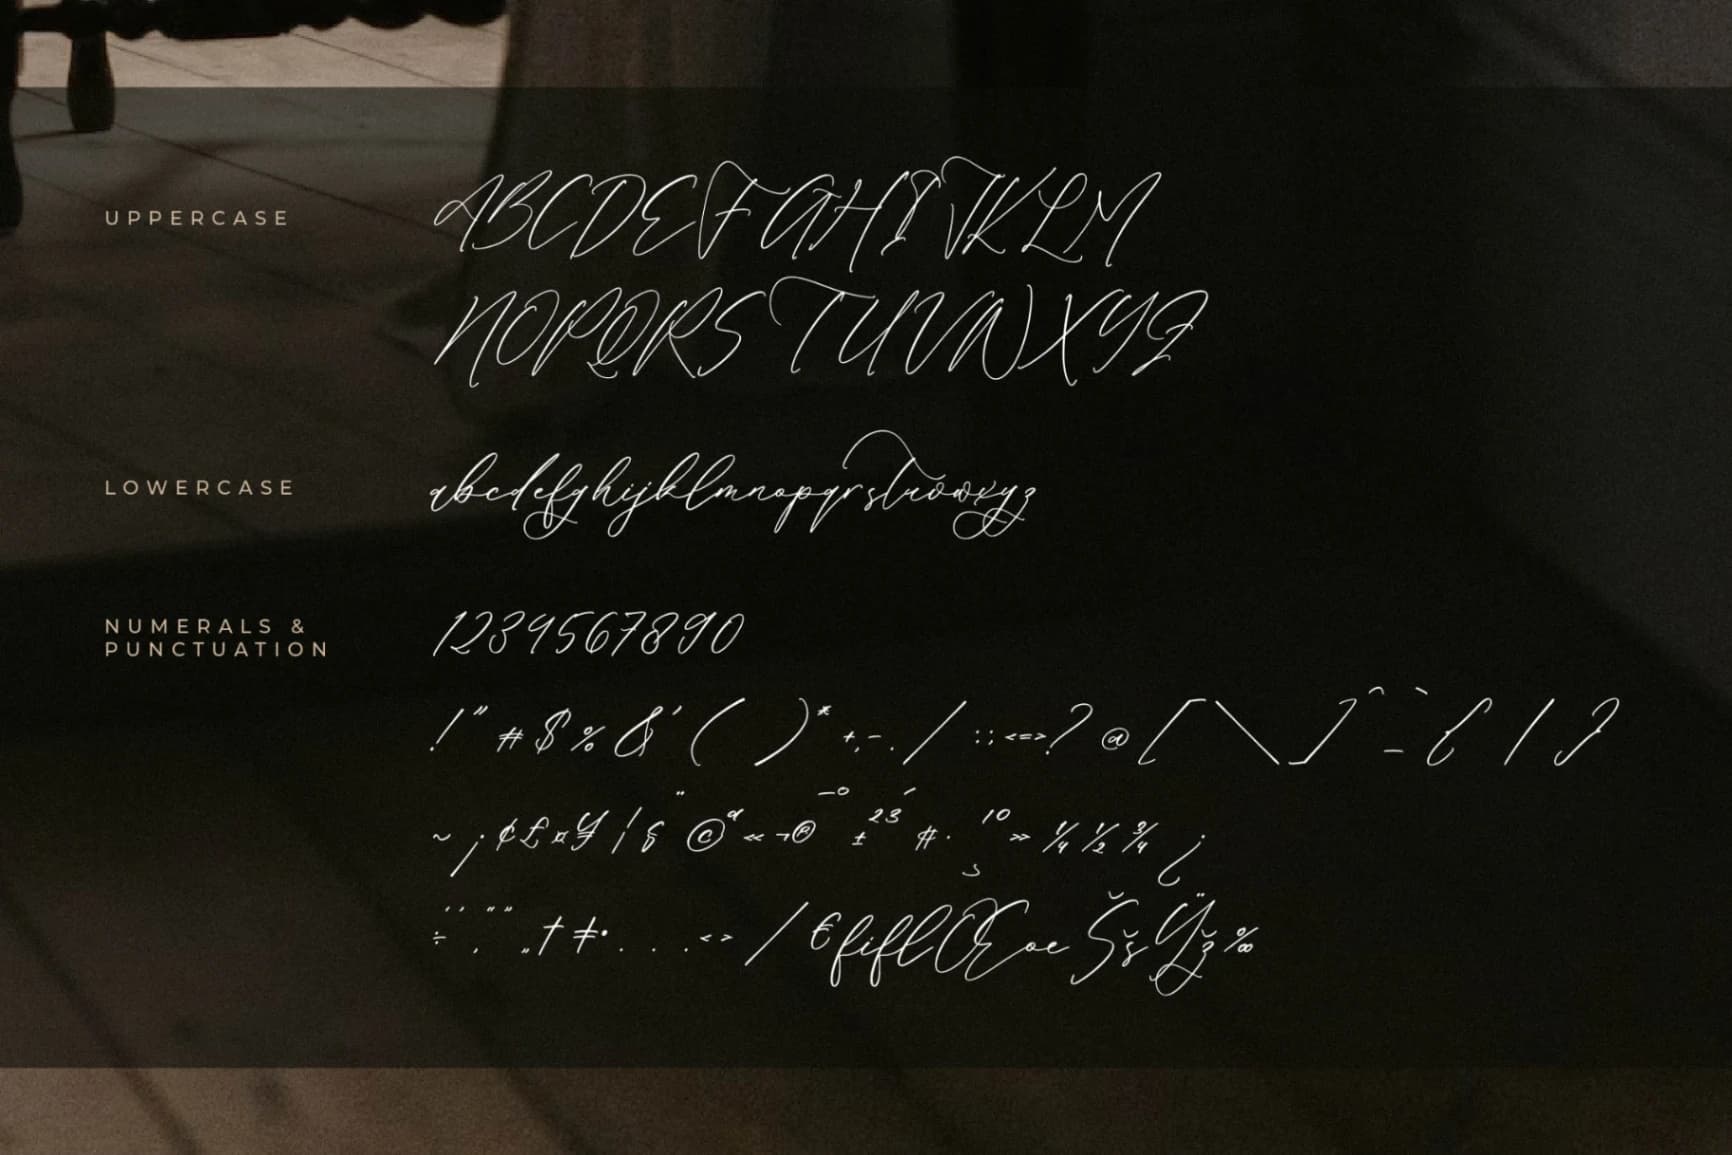 UPPERCASE
ABCDEFGHIJKLM
NOPQRSTUVWXYZ
LOWERCASE
abcdefghijklmnopqrstuvwxyz
NUMERALS &
PUNCTUATION
1234567890
!"#$%&'()*+,-./:;<=>?@[\]^`_{|}
~¡¢£¤¥¦§¨©ª«¬®¯°±²³´#·¸¹º»¼½¾¿
÷‘’‚“”„†‡•...‹›⁄€fiflŒœŠšŸž‰